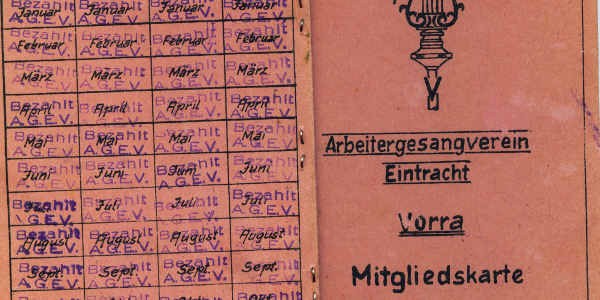 Januar Januar Januar Januar
Bezahlt Bezahlt Bezahlt Bezahlt
A.G.E.V. A.G.E.V. A.G.E.V. A.G.E.V.
Februar Februar Februar Februar
Bezahlt Bezahlt Bezahlt Bezahlt
A.G.E.V. A.G.E.V. A.G.E.V. A.G.E.V.
März März März März
Bezahlt Bezahlt Bezahlt Bezahlt
A.G.E.V. A.G.E.V. A.G.E.V. A.G.E.V.
April April April April
Bezahlt Bezahlt Bezahlt Bezahlt
A.G.E.V. A.G.E.V. A.G.E.V. A.G.E.V.
Mai Mai Mai Mai
Bezahlt Bezahlt Bezahlt Bezahlt
A.G.E.V. A.G.E.V. A.G.E.V. A.G.E.V.
Juni Juni Juni Juni
Bezahlt Bezahlt Bezahlt Bezahlt
A.G.E.V. A.G.E.V. A.G.E.V. A.G.E.V.
Juli Juli Juli
Bezahlt Bezahlt Bezahlt Bezahlt
A.G.E.V. A.G.E.V. A.G.E.V. A.G.E.V.
August August August August
Bezahlt Bezahlt Bezahlt
A.G.E.V. A.G.E.V. A.G.E.V.
Sept. Sept. Sept. Sept.
Arbeitergesangverein
Eintracht
Vorra
Mitgliedskarte